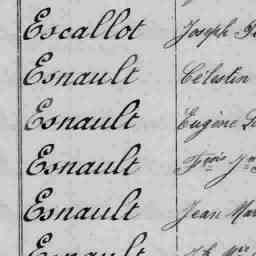 Escallot Joseph
Esnault Célestin
Esnault Eugène
Esnault Fçois
Esnault Jean Mar
Esnault